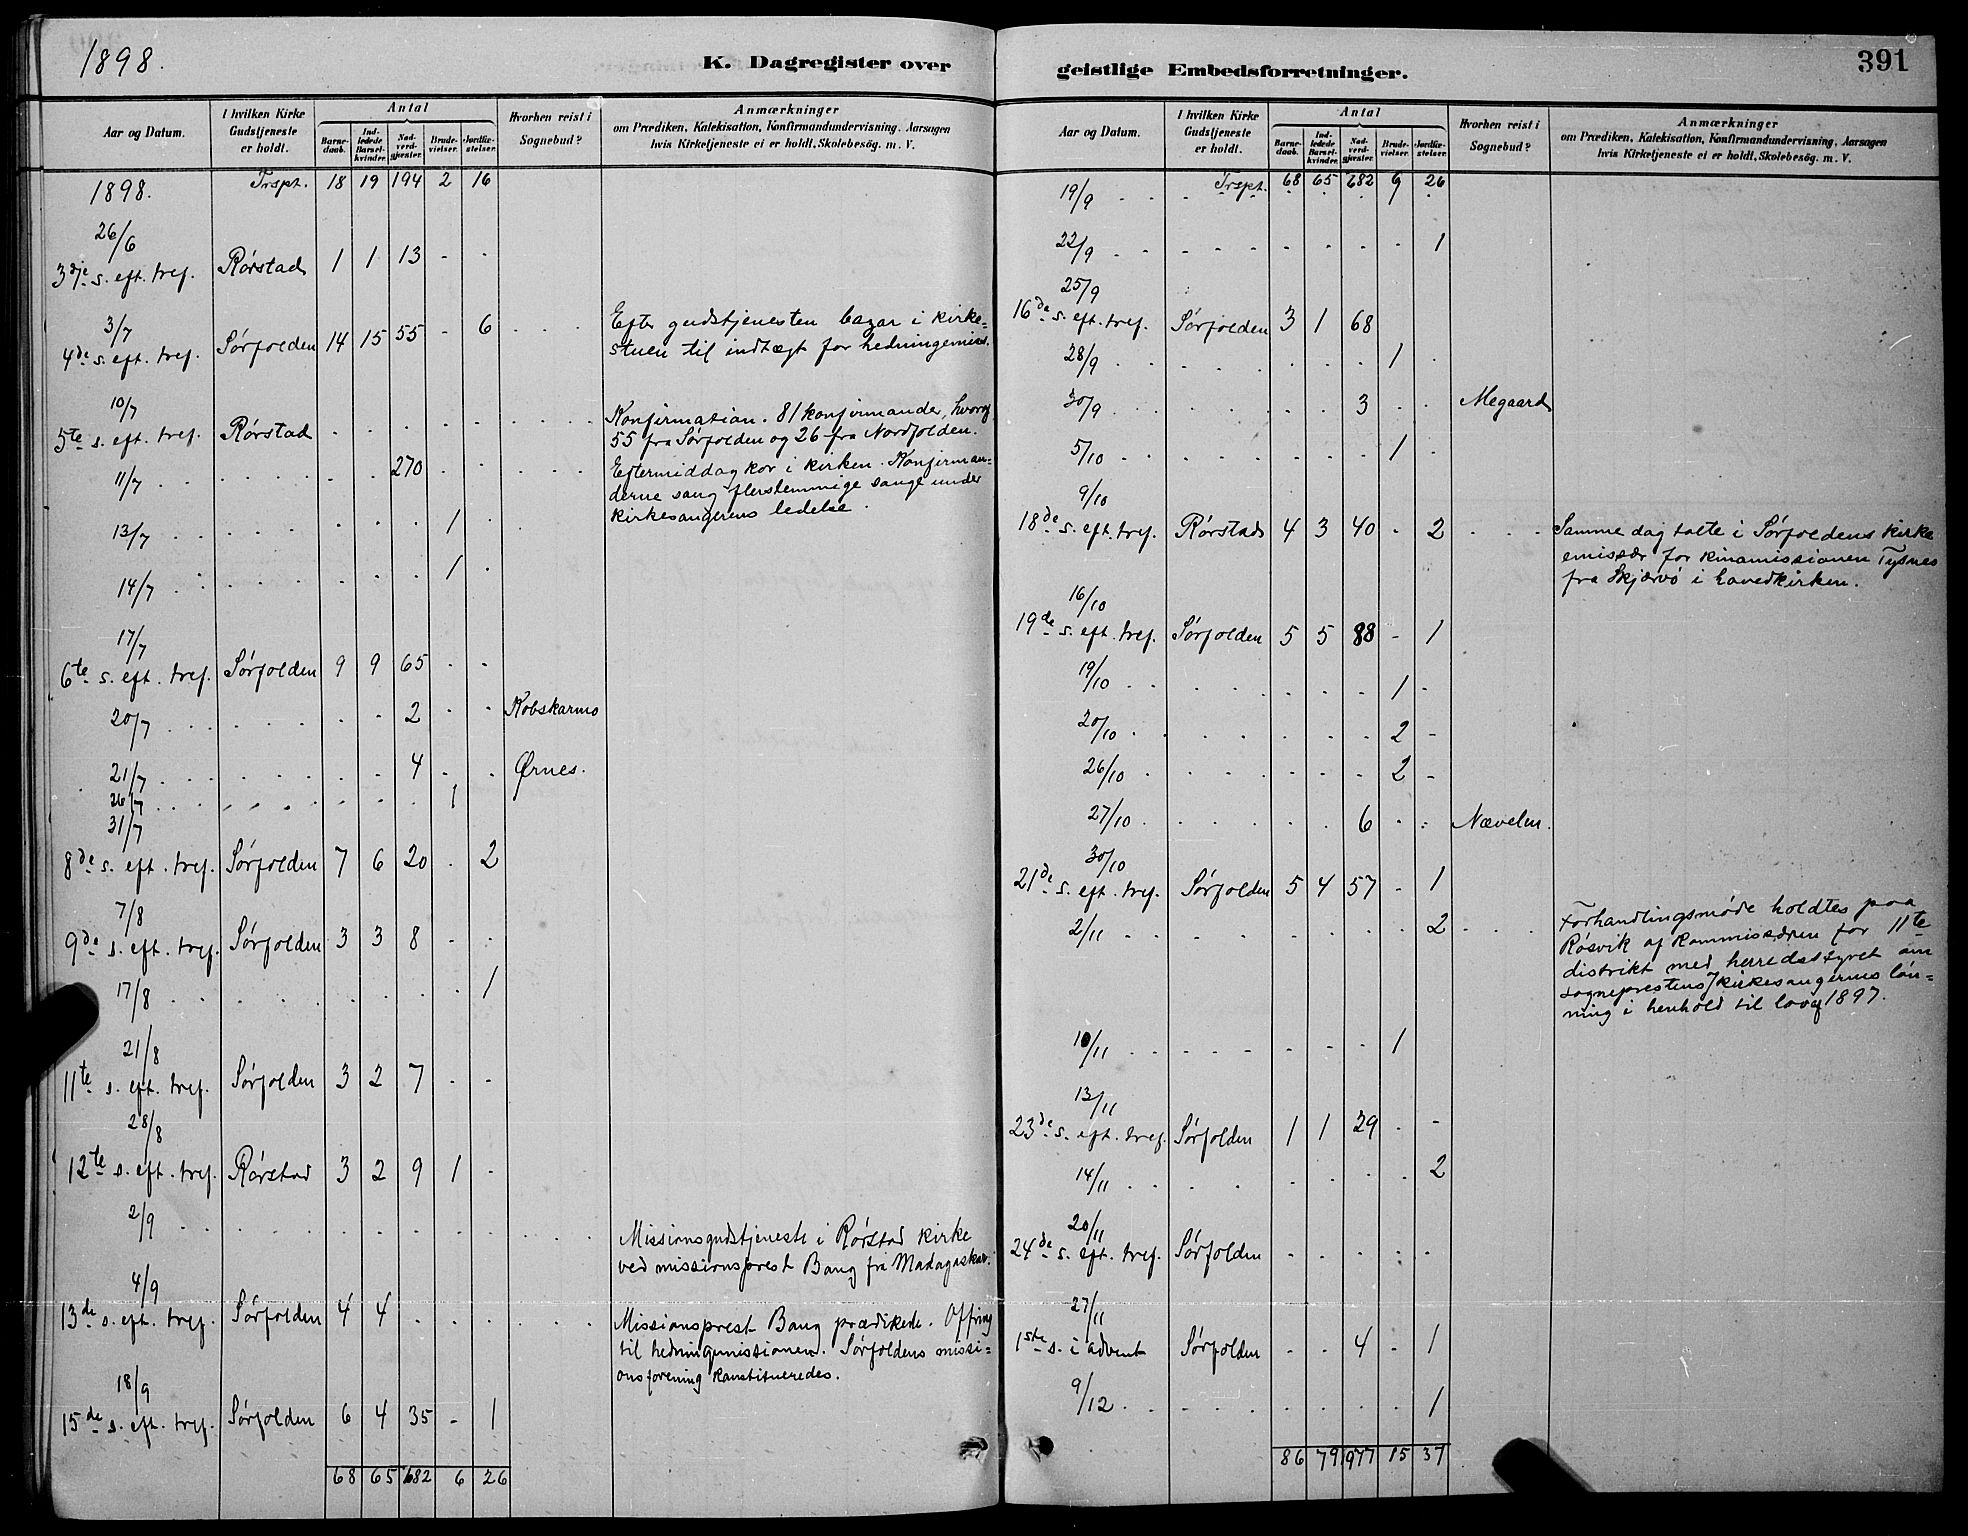 1898.
K. Dagregister over
Aar og Datum.
I hvilken Kirke Gudstjeneste er holdt.
Antal
Barnedaab.
Indledede Barselkvinder.
Nadverdgjester.
Brudevielser.
Jordfæstelser.
Hvorhen reist i Sognebud?
Anmærkninger
om Prædiken, Katekisation, Konfirmandundervisning. Aarsagen
hvis Kirketjeneste ei er holdt, Skolebesög. m. V.
1898. Trspt. 18 19 194 2 16
26/6
3dje s. eft. tref. Rørstad 1 1 13 - -
3/7
4de s. eft. tref. Sørfolden 14 15 55 - 6 . . . Efter gudstjenesten bazar i kirke=
stuen til indtægt for hedningemiss.
10/7
5te s. eft. tref. Rørstad . . . . . . . . Konfirmation. 81 konfirmander, hvoraf
55 fra Sørfolden og 26 fra Nordfolden.
11/7 . . . . . . 270 . . . . . Eftermiddag kor i kirken. Konfirman=
derne sang flerstemmige sange under
kirkesangerens ledelse.
13/7 . . . . . . . 1 .
14/7 . . . . . . . 1 .
17/7
6te s. eft. tref. Sørfolden 9 9 65 - -
20/7 . . . . . . 2 . . Kobskarmo
21/7 . . . . . . 4 . . Ørnes.
26/7 . . . . . . . 1
31/7
8de s. eft. tref. Sørfolden 7 6 20 . 2
7/8
9de s. eft. tref. Sørfolden 3 3 8 - -
17/8 . . . . . . . . 1
21/8
11te s. eft. tref. Sørfolden 3 2 7 - -
28/8
12te s. eft. tref. Rørstad 3 2 9 1 -
2/9 . . . . . . . . . . . Missionsgudstjeneste i Rørstad kirke
ved missionsprest Bang fra Madagaskar.
4/9
13de s. eft. tref. Sørfolden 4 4 . . . . . . Missionsprest Bang prædikede. Offring
til hedningemissionen. Sørfoldens missi=
onsforening konstitueredes.
18/9
15de s. eft. tref. Sørfolden 6 4 35 - 1
68 65 682 6 26
geistlige Embedsforretninger.
391
Aar og Datum.
I hvilken Kirke Gudstjeneste er holdt.
Antal
Barnedaab.
Indledede Barselkvinder.
Nadverdgjester.
Brudevielser.
Jordfæstelser.
Hvorhen reist i Sognebud?
Anmærkninger
om Prædiken, Katekisation, Konfirmandundervisning, Aarsagen
hvis Kirketjeneste ei er holdt, Skolebesög. m. V.
19/9 . . . Trspt. 68 65 682 9 26
22/9 . . . . . . . . 1
25/9
16de s. eft. tref. Sørfolden 3 1 68
28/9 . . . . . . . 1 .
30/9 . . . . . . 3 . . Megaard
5/10 . . . . . . . 1 .
9/10
18de s. eft. tref. Rørstad 4 3 40 - 2 . . . Samme dag talte i Sørfoldens kirke
emissær for kinamissionen Tysnes
fra Skjærvø i hovedkirken.
16/10
19de s. eft. tref. Sørfolden 5 5 88 - 1
19/10 . . . . . . . 1 -
20/10 . . . . . . . 2 -
26/10 . . . . . . . 2 -
27/10 . . . . . . 6 . . Nævelen.
30/10
21de s. eft. tref. Sørfolden 5 4 57 - 1
2/11 . . . . . . . . 2 . . . Forhandlingsmøde holdtes paa
Røsvik af kommissæren for 11te
distrikt med herredsstyret om
sogneprestens/kirkesangerens løn=
ning i henhold til lov af 1897.
10/11 . . . . . . . 1
13/11
23de s. eft. tref. Sørfolden 1 1 29 - -
14/11 . . . . . . . . 2
20/11
24de s. eft. tref. Sørfolden - - - - -
27/11
1ste s. i advent Sørfolden - - 4 - 1
9/12 . . . . . . . . 1
86 79 977 15 37